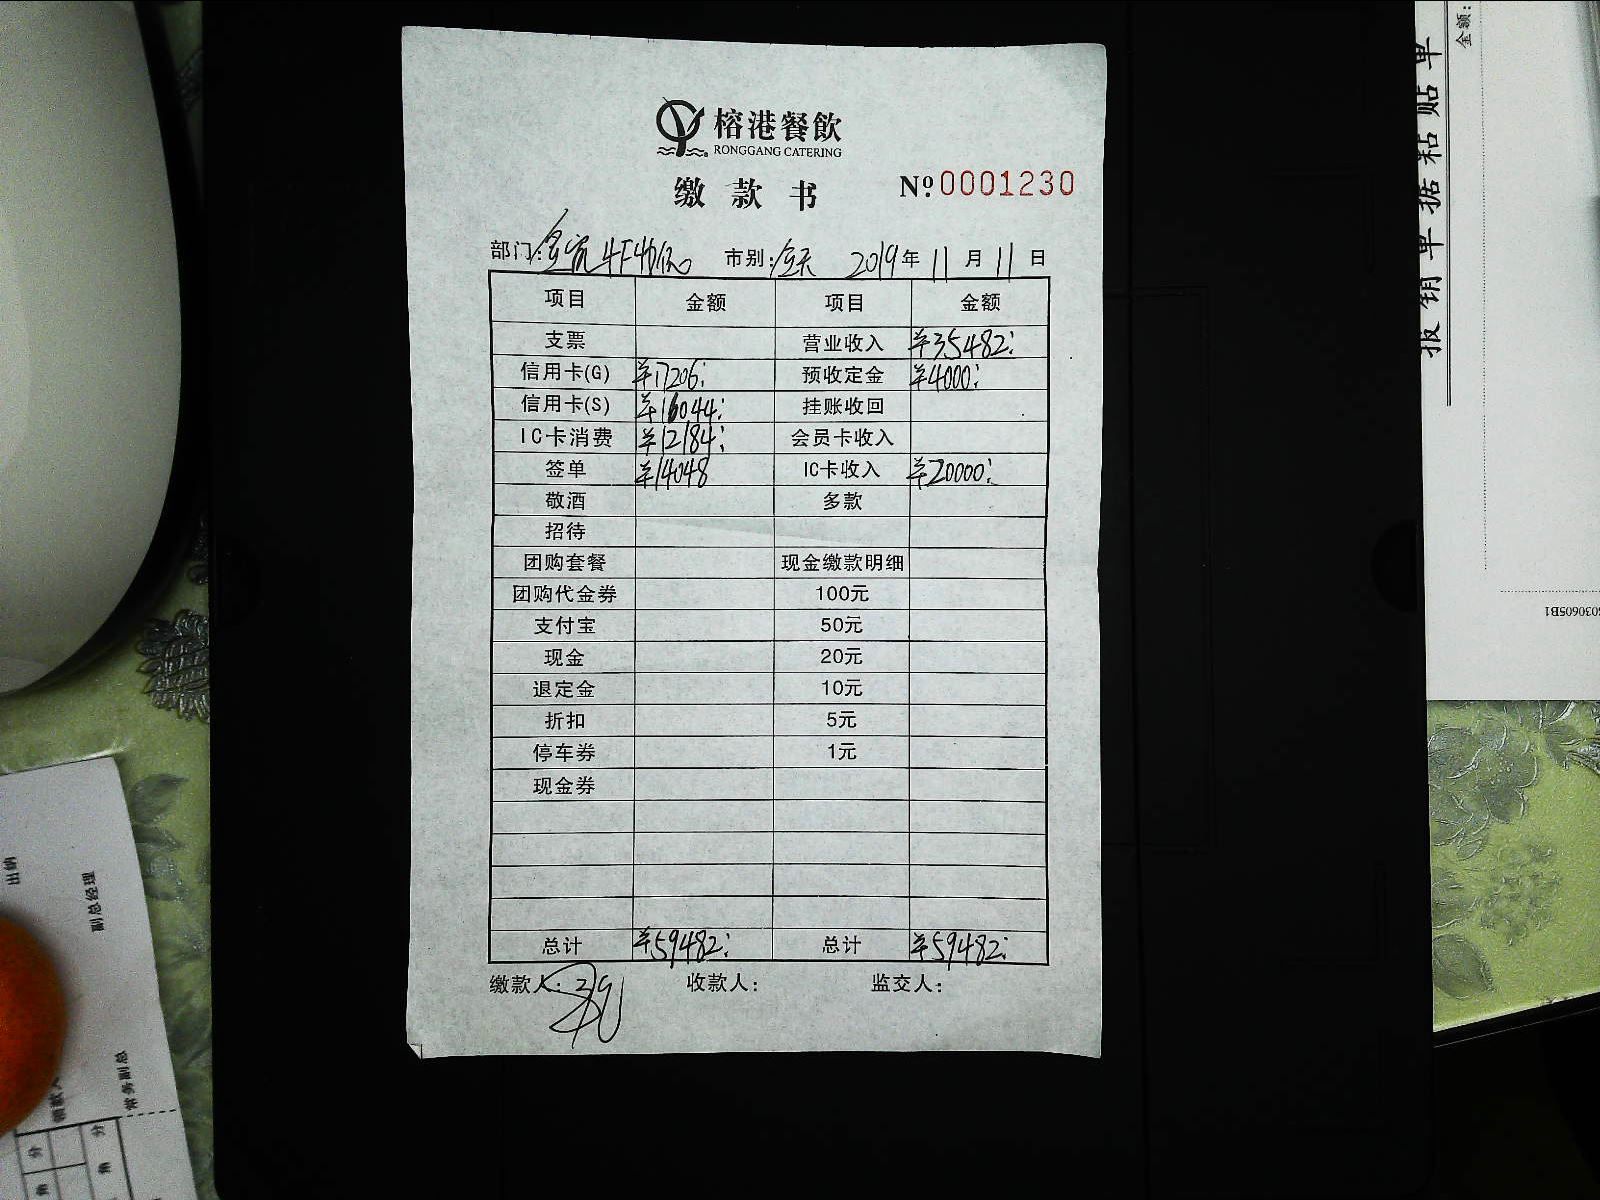 榕港餐飲
RONGGANG CATERING
缴款书 Nº 0001230
部门: 市别:全天 2019年11月11日
项目 金额 项目 金额
支票 营业收入 ¥35482:
信用卡(G) ¥17206: 预收定金 ¥4000:
信用卡(S) ¥16044: 挂账收回
IC卡消费 ¥12184: 会员卡收入
签单 ¥14048 IC卡收入 ¥20000:
敬酒 多款
招待
团购套餐 现金缴款明细
团购代金券 100元
支付宝 50元
现金 20元
退定金 10元
折扣 5元
停车券 1元
现金券
总计 ¥59482: 总计 ¥59482:
缴款人: 收款人: 监交人:
报销单据粘贴单
金额:
出纳
副总经理
常务副总
角 分
角 分